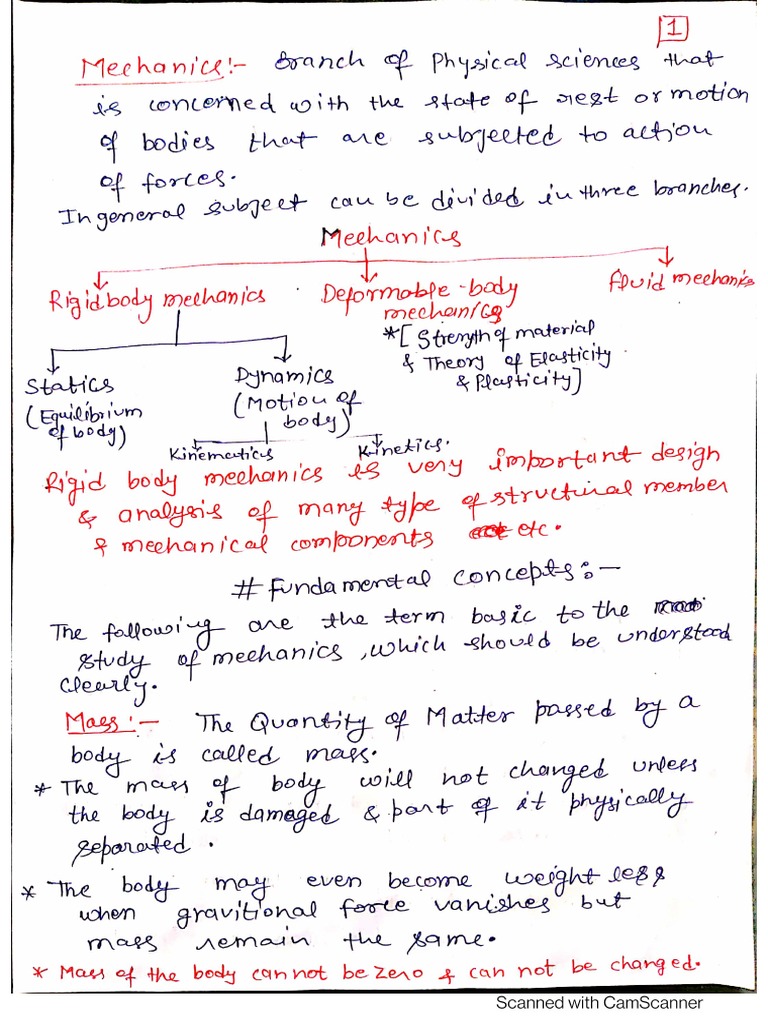 1
Mechanics:- Branch of Physical sciences that
is concerned with the state of rest or motion
of bodies that are subjected to action
of forces.
In general subject can be divided in three branches.
Mechanics
Rigid body mechanics Deformable-body Fluid mechanics
mechanics
*[Strength of material
Statics Dynamics & Theory of Elasticity
(Equilibrium (Motion of & Plasticity]
of body) body)
Kinematics Kinetics.
Rigid body mechanics is very important design
& analysis of many type of structural member
& mechanical components etc.
# Fundamental concepts:-
The following are the term basic to the
study of mechanics, which should be understood
clearly.
Mass:- The Quantity of Matter passed by a
body is called mass.
* The mass of body will not changed unless
the body is damaged & part of it physically
separated.
* The body may even become weight less
when gravitional force vanishes but
mass remain the same.
* Mass of the body can not be zero & can not be changed.
Scanned with CamScanner